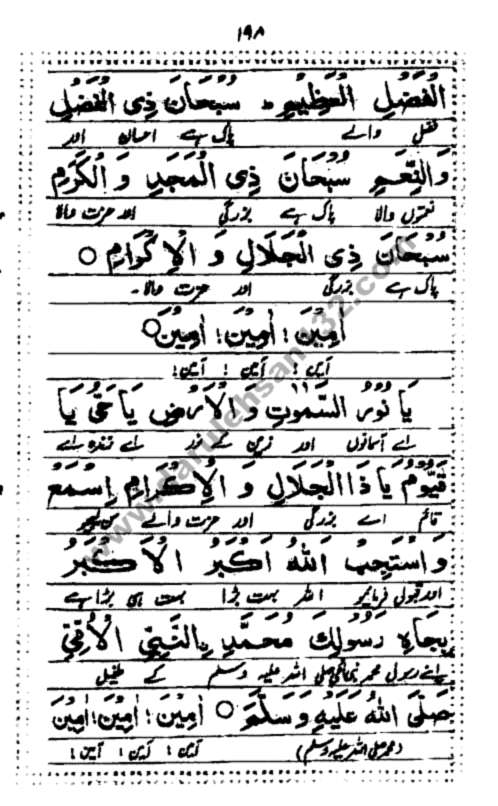 ۱۹۸
الْفَضْلِ الْعَظِيْمِ۔ سُبْحَانَ ذِی الْفَضْلِ
فضل والے پاک ہے احسان اور
وَالنِّعَمِ سُبْحَانَ ذِی الْمَجْدِ وَ الْكَرَمِ
نعمتوں والا پاک ہے بزرگی اور عزت والا
سُبْحَانَ ذِی الْجَلَالِ وَ الْاِكْرَامِ ○
پاک ہے بزرگی اور عزت والا۔
اٰمِيْنَ؛ اٰمِيْنَ؛ اٰمِيْنَ○
آمین؛ آمین؛ آمین؛
يَا نُوْرُ السَّمٰوٰتِ وَ الْاَرْضِ يَا حَیُّ يَا
اے آسمانوں اور زمین کے نور اے زندہ اے
قَيُّوْمُ يَا ذَا الْجَلَالِ وَ الْاِكْرَامِ اِسْمَعْ
قائم اے بزرگی اور عزت والے سن لیجیو
وَ اسْتَجِبْ اَللّٰهُ اَكْبَرُ الْاَكْبَرُ
اور قبول فرمائیو اللہ بہت بڑا بہت ہی بڑا ہے
بِجَاهِ رَسُوْلِكَ مُحَمَّدِ ِالنَّبِیِّ الْاُمِّیِّ
اپنے رسول محمد نبی امی صلی اللہ علیہ وسلم کے طفیل
صَلَّی اللّٰهُ عَلَيْهِ وَسَلَّمَ ○ اٰمِيْنَ؛ اٰمِيْنَ؛ اٰمِيْنَ
(محمد صلی اللہ علیہ وسلم) آمین؛ آمین؛ آمین؛
www.darulehsan132.com